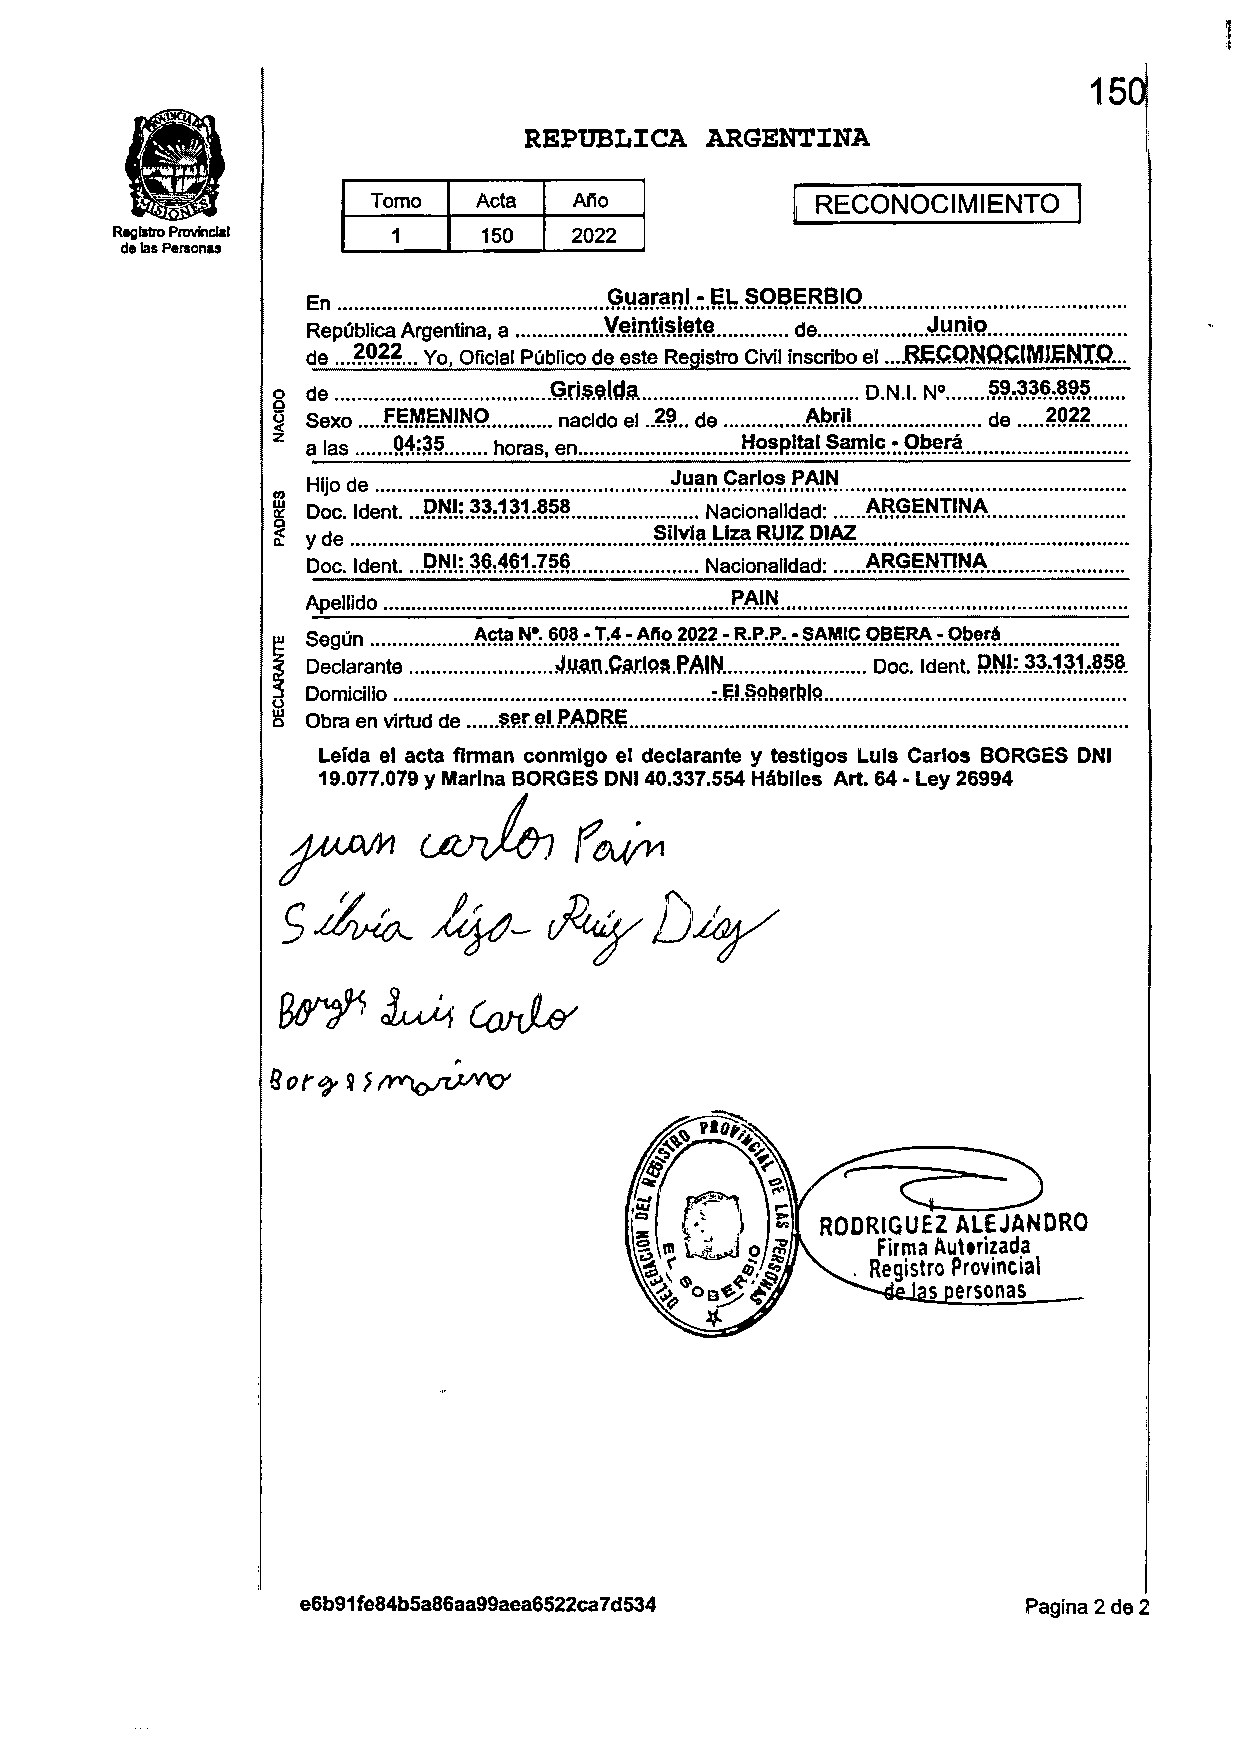 150
PROVINCIA DE
MISIONES
Registro Provincial
de las Personas
REPUBLICA ARGENTINA
Tomo Acta Año
1 150 2022
RECONOCIMIENTO
En Guaraní - EL SOBERBIO
República Argentina, a Veintisiete de Junio
de 2022 Yo, Oficial Público de este Registro Civil inscribo el RECONOCIMIENTO
NACIDO
de Griselda D.N.I. Nº 59.336.895
Sexo FEMENINO nacido el 29 de Abril de 2022
a las 04:35 horas, en Hospital Samic - Oberá
PADRES
Hijo de Juan Carlos PAIN
Doc. Ident. DNI: 33.131.858 Nacionalidad: ARGENTINA
y de Silvia Liza RUIZ DIAZ
Doc. Ident. DNI: 36.461.756 Nacionalidad: ARGENTINA
Apellido PAIN
DECLARANTE
Según Acta Nº. 608 - T.4 - Año 2022 - R.P.P. - SAMIC OBERA - Oberá
Declarante Juan Carlos PAIN Doc. Ident. DNI: 33.131.858
Domicilio - El Soberbio
Obra en virtud de ser el PADRE
Leída el acta firman conmigo el declarante y testigos Luis Carlos BORGES DNI
19.077.079 y Marina BORGES DNI 40.337.554 Hábiles Art. 64 - Ley 26994
juan carlos Pain
Silvia liza Ruiz Díaz
Borges Luis Carlo
Borges marina
DELEGACION DEL REGISTRO PROVINCIAL DE LAS PERSONAS
EL SOBERBIO
RODRIGUEZ ALEJANDRO
Firma Autorizada
Registro Provincial
de las personas
e6b91fe84b5a86aa99aea6522ca7d534
Pagina 2 de 2